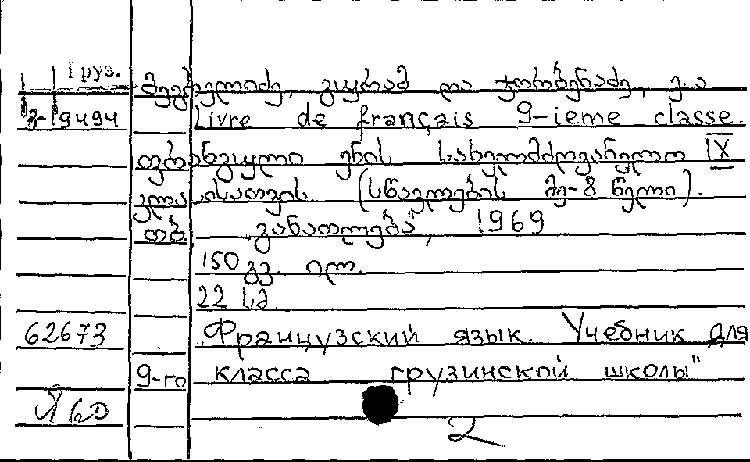 Груз.
მეგრელიძე, გიგრამ და ჯორბენაძე, ე. ა
გ-19494 Livre de français 9-ieme classe.
ფრანგული ენის სახელმძღვანელო IX
კლასისათვის. (სწავლების მე-8 წელი).
თბ „განათლება", 1969
150 გვ. ილ.
22 სმ
62673 Французский язык. Учебник для
9-го класса грузинской школы"
2